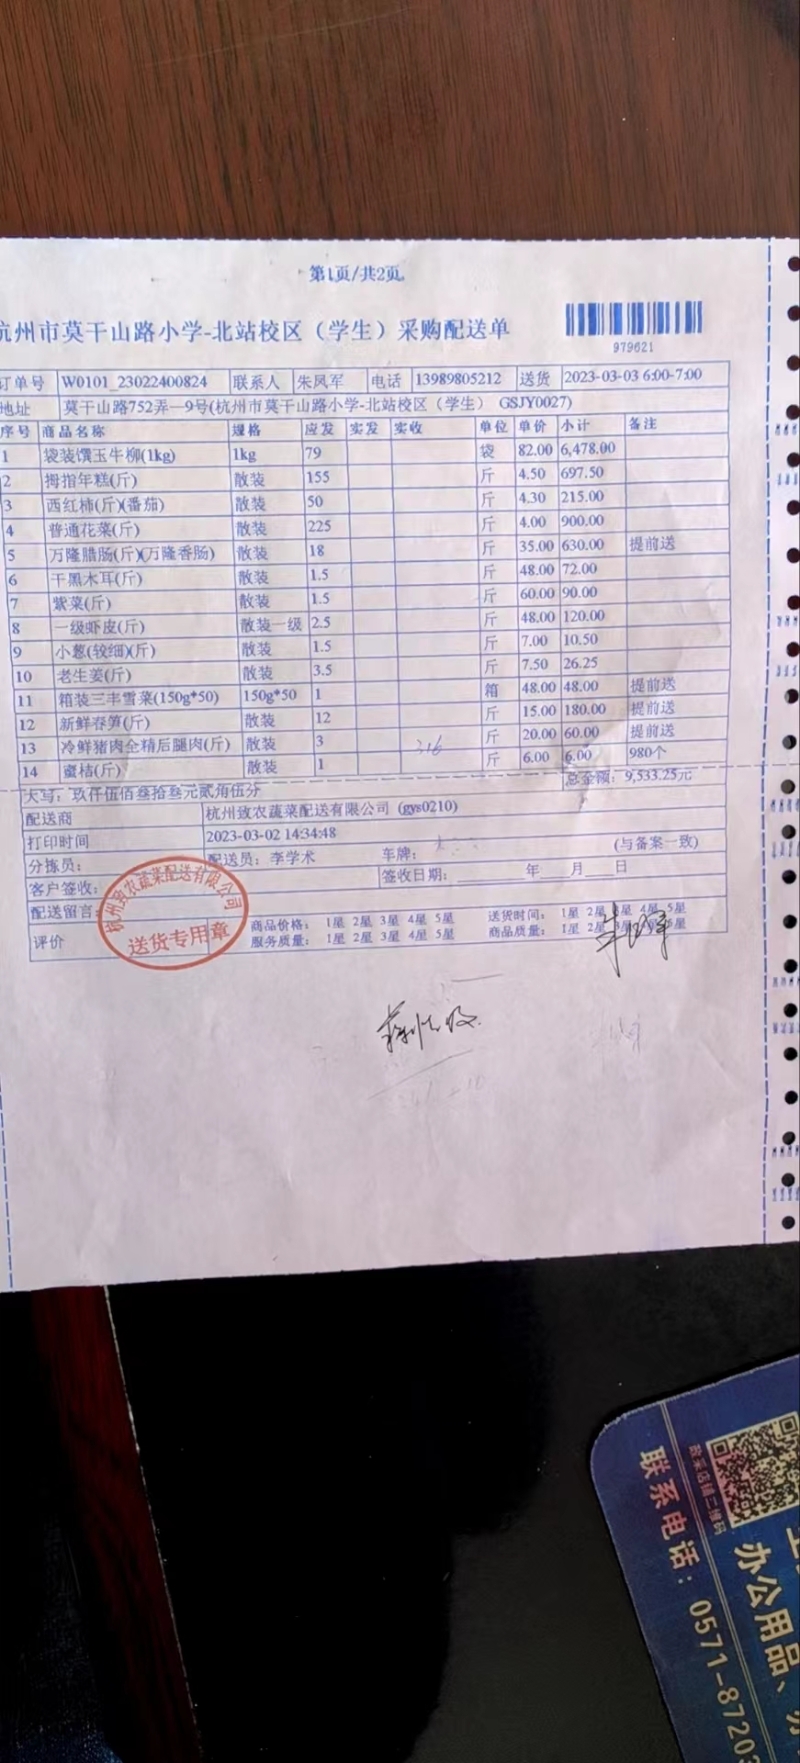 第1页/共2页
杭州市莫干山路小学-北站校区（学生）采购配送单
979621
订单号 W0101_23022400824 联系人 朱凤军 电话 13989805212 送货 2023-03-03 6:00-7:00
地址 莫干山路752弄—9号(杭州市莫干山路小学-北站校区（学生） GSJY0027)
序号 商品名称 规格 应发 实发 实收 单位 单价 小计 备注
1 袋装馔玉牛柳(1kg) 1kg 79 袋 82.00 6,478.00
2 拇指年糕(斤) 散装 155 斤 4.50 697.50
3 西红柿(斤)(番茄) 散装 50 斤 4.30 215.00
4 普通花菜(斤) 散装 225 斤 4.00 900.00
5 万隆腊肠(斤)(万隆香肠) 散装 18 斤 35.00 630.00 提前送
6 干黑木耳(斤) 散装 1.5 斤 48.00 72.00
7 紫菜(斤) 散装 1.5 斤 60.00 90.00
8 一级虾皮(斤) 散装一级 2.5 斤 48.00 120.00
9 小葱(较细)(斤) 散装 1.5 斤 7.00 10.50
10 老生姜(斤) 散装 3.5 斤 7.50 26.25
11 箱装三丰雪菜(150g*50) 150g*50 1 箱 48.00 48.00 提前送
12 新鲜春笋(斤) 散装 12 斤 15.00 180.00 提前送
13 冷鲜猪肉全精后腿肉(斤) 散装 3 316 斤 20.00 60.00 提前送
14 蜜桔(斤) 散装 1 斤 6.00 6.00 980个
大写：玖仟伍佰叁拾叁元贰角伍分 总金额：9,533.25元
配送商 杭州致农蔬菜配送有限公司 (gys0210)
打印时间 2023-03-02 14:34:48
分拣员： 配送员：李学术 车牌： (与备案一致)
客户签收： 签收日期：______年___月___日
配送留言：
评价 商品价格： 1星 2星 3星 4星 5星 送货时间： 1星 2星 3星 4星 5星
服务质量： 1星 2星 3星 4星 5星 商品质量： 1星 2星 3星 4星 5星
杭州致农蔬菜配送有限公司
送货专用章
联系电话：0571-8720
办公用品、